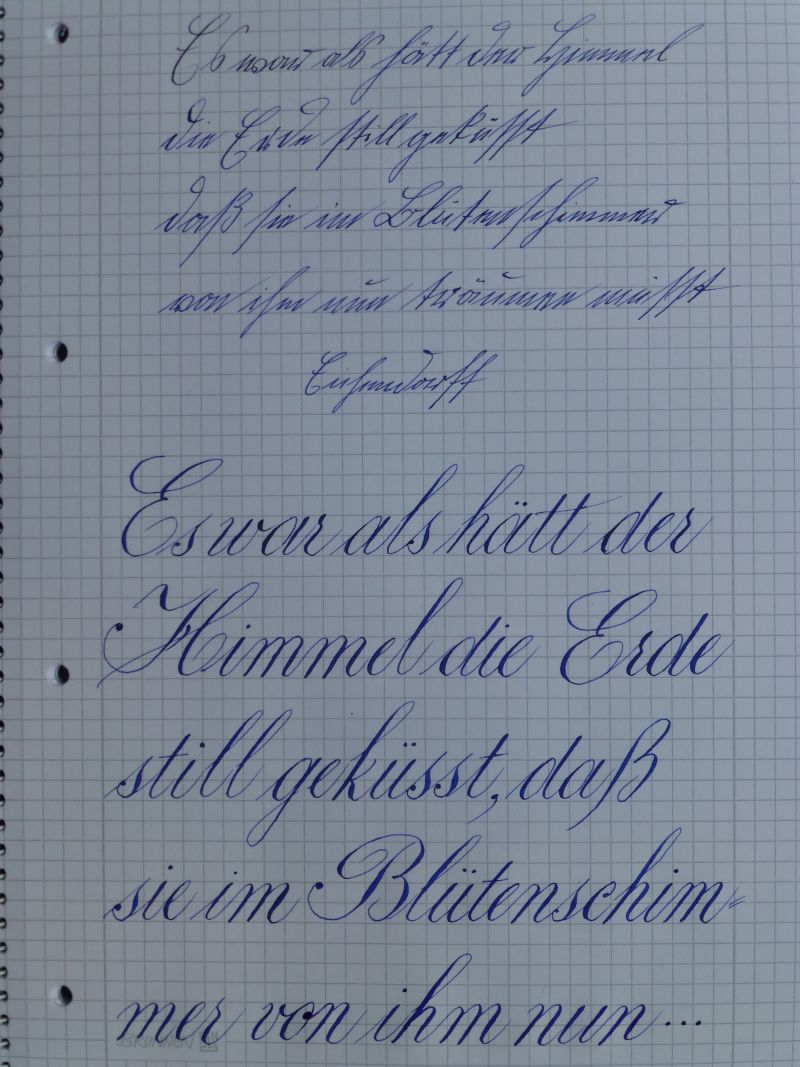 Es war als hätt der Himmel
die Erde still geküsst
daß sie im Blütenschimmer
von ihm nun träumen müsst
Eichendorff
Es war als hätt der
Himmel die Erde
still geküsst, daß
sie im Blütenschim=
mer von ihm nun...
BRUNNEN